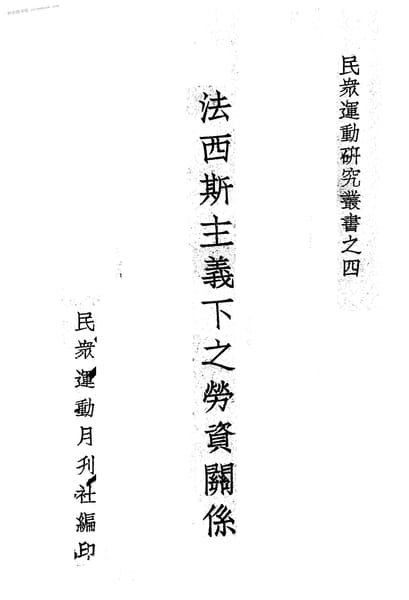 民衆運動研究叢書之四
法西斯主義下之勞資關係
民衆運動月刊社編印